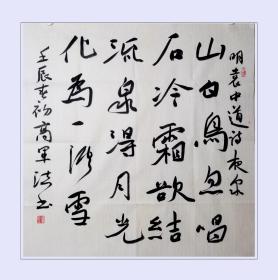 明袁中道诗夜泉
山白鸟忽唱
石冷霜欲结
流泉得月光
化为一溪雪
壬辰春初高军法书